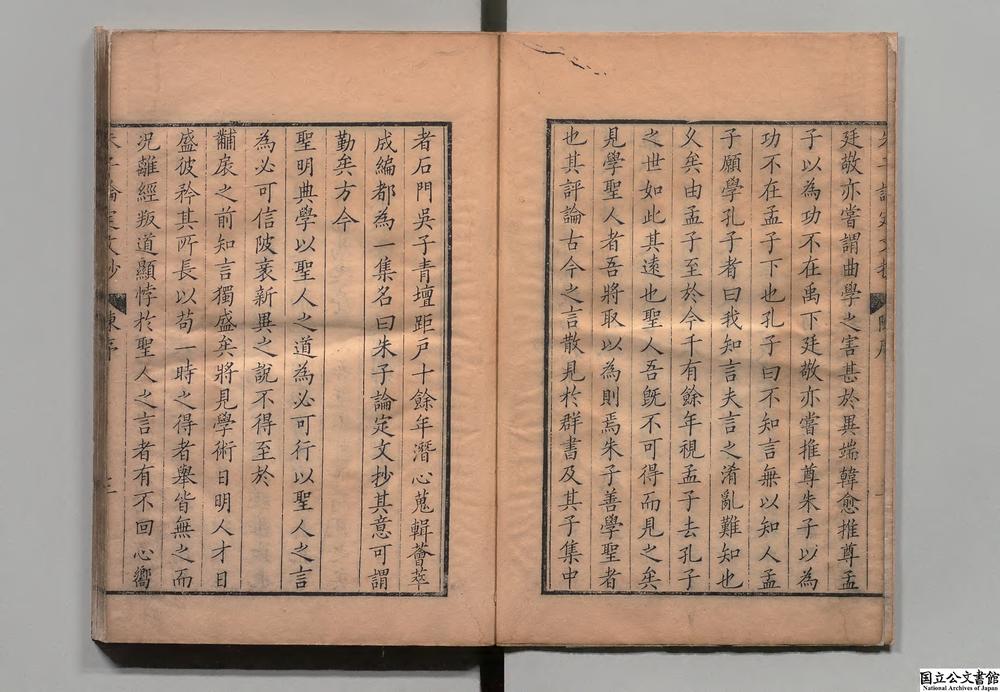 廷敬亦嘗謂曲學之害甚於異端韓愈推尊孟
子以為功不在禹下廷敬亦嘗推尊朱子以為
功不在孟子下也孔子曰不知言無以知人孟
子願學孔子者曰我知言夫言之淆亂難知也
久矣由孟子至於今千有餘年視孟子去孔子
之世如此其遠也聖人吾旣不可得而見之矣
見學聖人者吾將取以為則焉朱子善學聖者
也其評論古今之言散見於群書及其子集中
者石門吳子青壇距戶十餘年潛心蒐輯薈萃
成編都為一集名曰朱子論定文抄其意可謂
勤矣方今
聖明典學以聖人之道為必可行以聖人之言
為必可信陂衺新異之說不得至於
黼扆之前知言獨盛矣將見學術日明人才日
盛彼矜其所長以苟一時之得者舉皆無之而
況離經叛道顯悖於聖人之言者有不回心嚮
朱子論定文抄
陳序
二
国立公文書館
National Archives of Japan